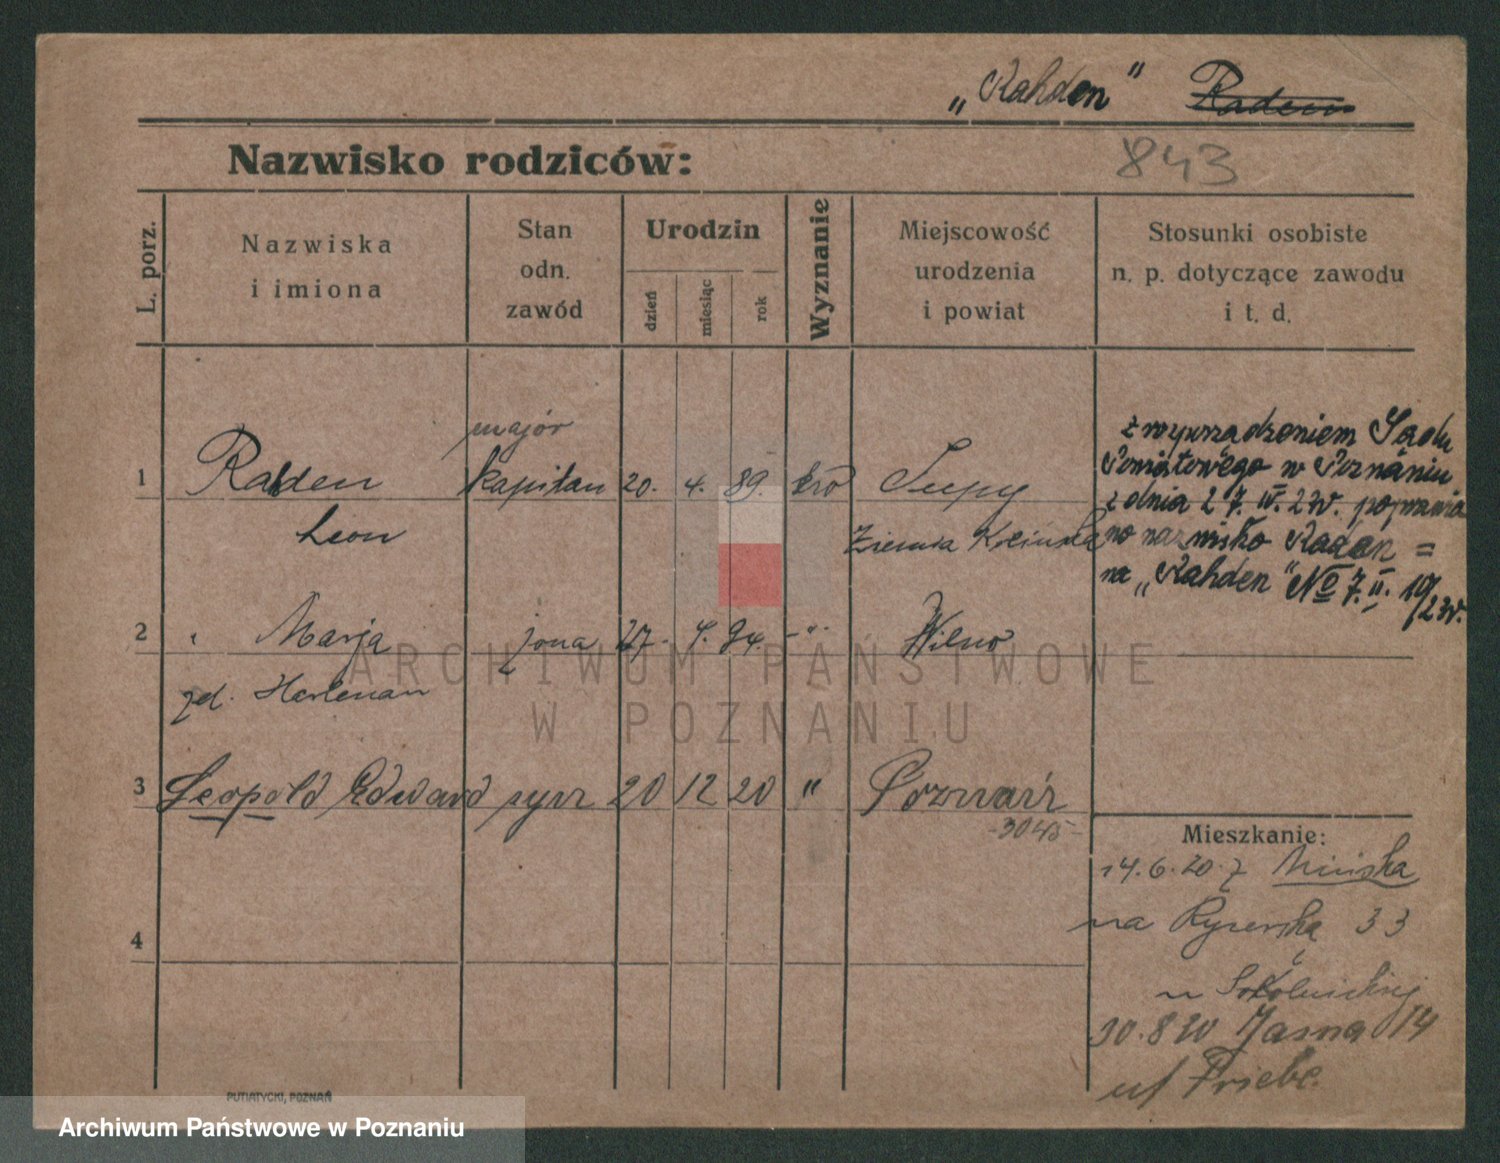 „Rahden" Raden
Nazwisko rodziców:
843
L. porz.
Nazwiska
i imiona
Stan
odn.
zawód
Urodzin
dzień
miesiąc
rok
Wyznanie
Miejscowość
urodzenia
i powiat
Stosunki osobiste
n. p. dotyczące zawodu
i t. d.
major
1 Rahden kapitan 20. 4. 89.
Leon
Ziemia
z rozporządzeniem Sądu
Powiatowego w Poznaniu
z dnia 27. IV. 2 popra­wia
no nazwisko Raden =
na „Rahden" № 7. II. 19/
2 Marja żona 27. 94. -"- Wilno
zd.
3 Leopold Edward syn 20 12 20 " Poznań
-3045-
4
Mieszkanie:
14.6.20 z Mińska
na 33
u
30.8.20 Jasna 14
uf Priebe.
PUTIATYCKI, POZNAŃ
ARCHIWUM PAŃSTWOWE
W POZNANIU
Archiwum Państwowe w Poznaniu